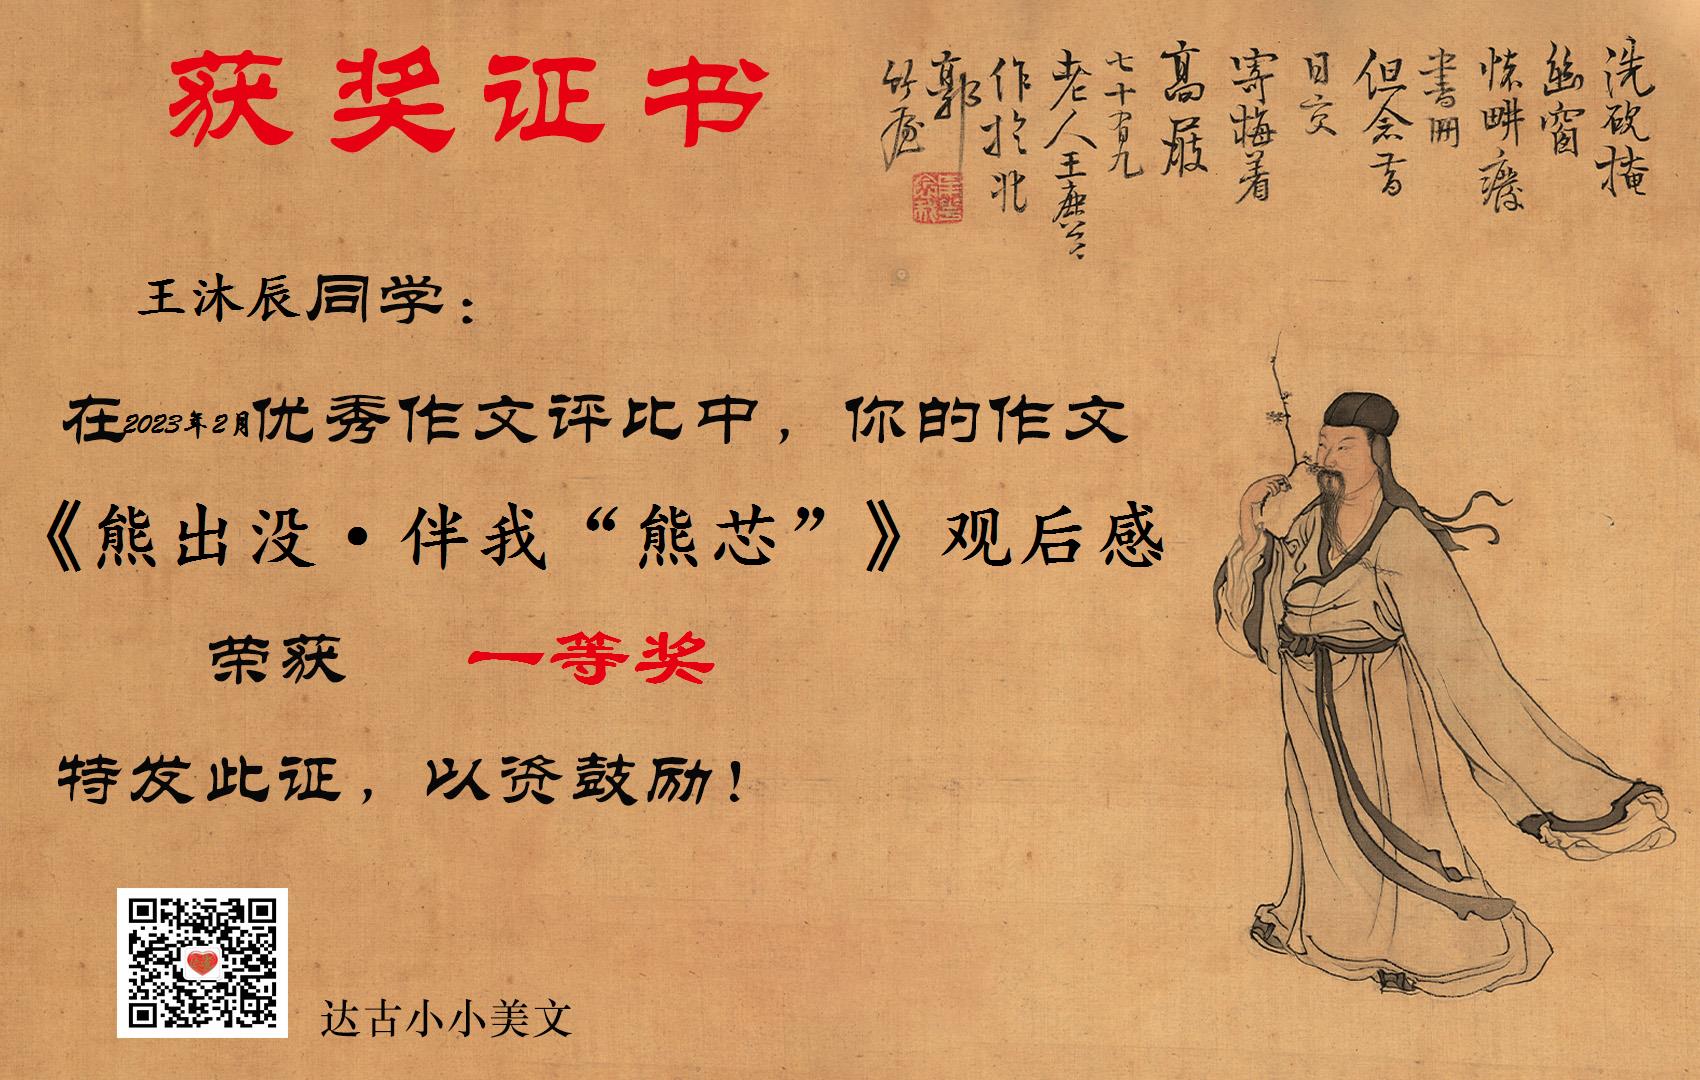 获奖证书
洗砚掩
幽窗
怀畊癈
書冊
但念昔
日交
寄梅着
高屐
七十有九
老人王鹿公
作於北
郭
竹廬
王沐辰同学：
在2023年2月优秀作文评比中，你的作文
《熊出没·伴我“熊芯”》观后感
荣获 一等奖
特发此证，以资鼓励！
达古小小美文